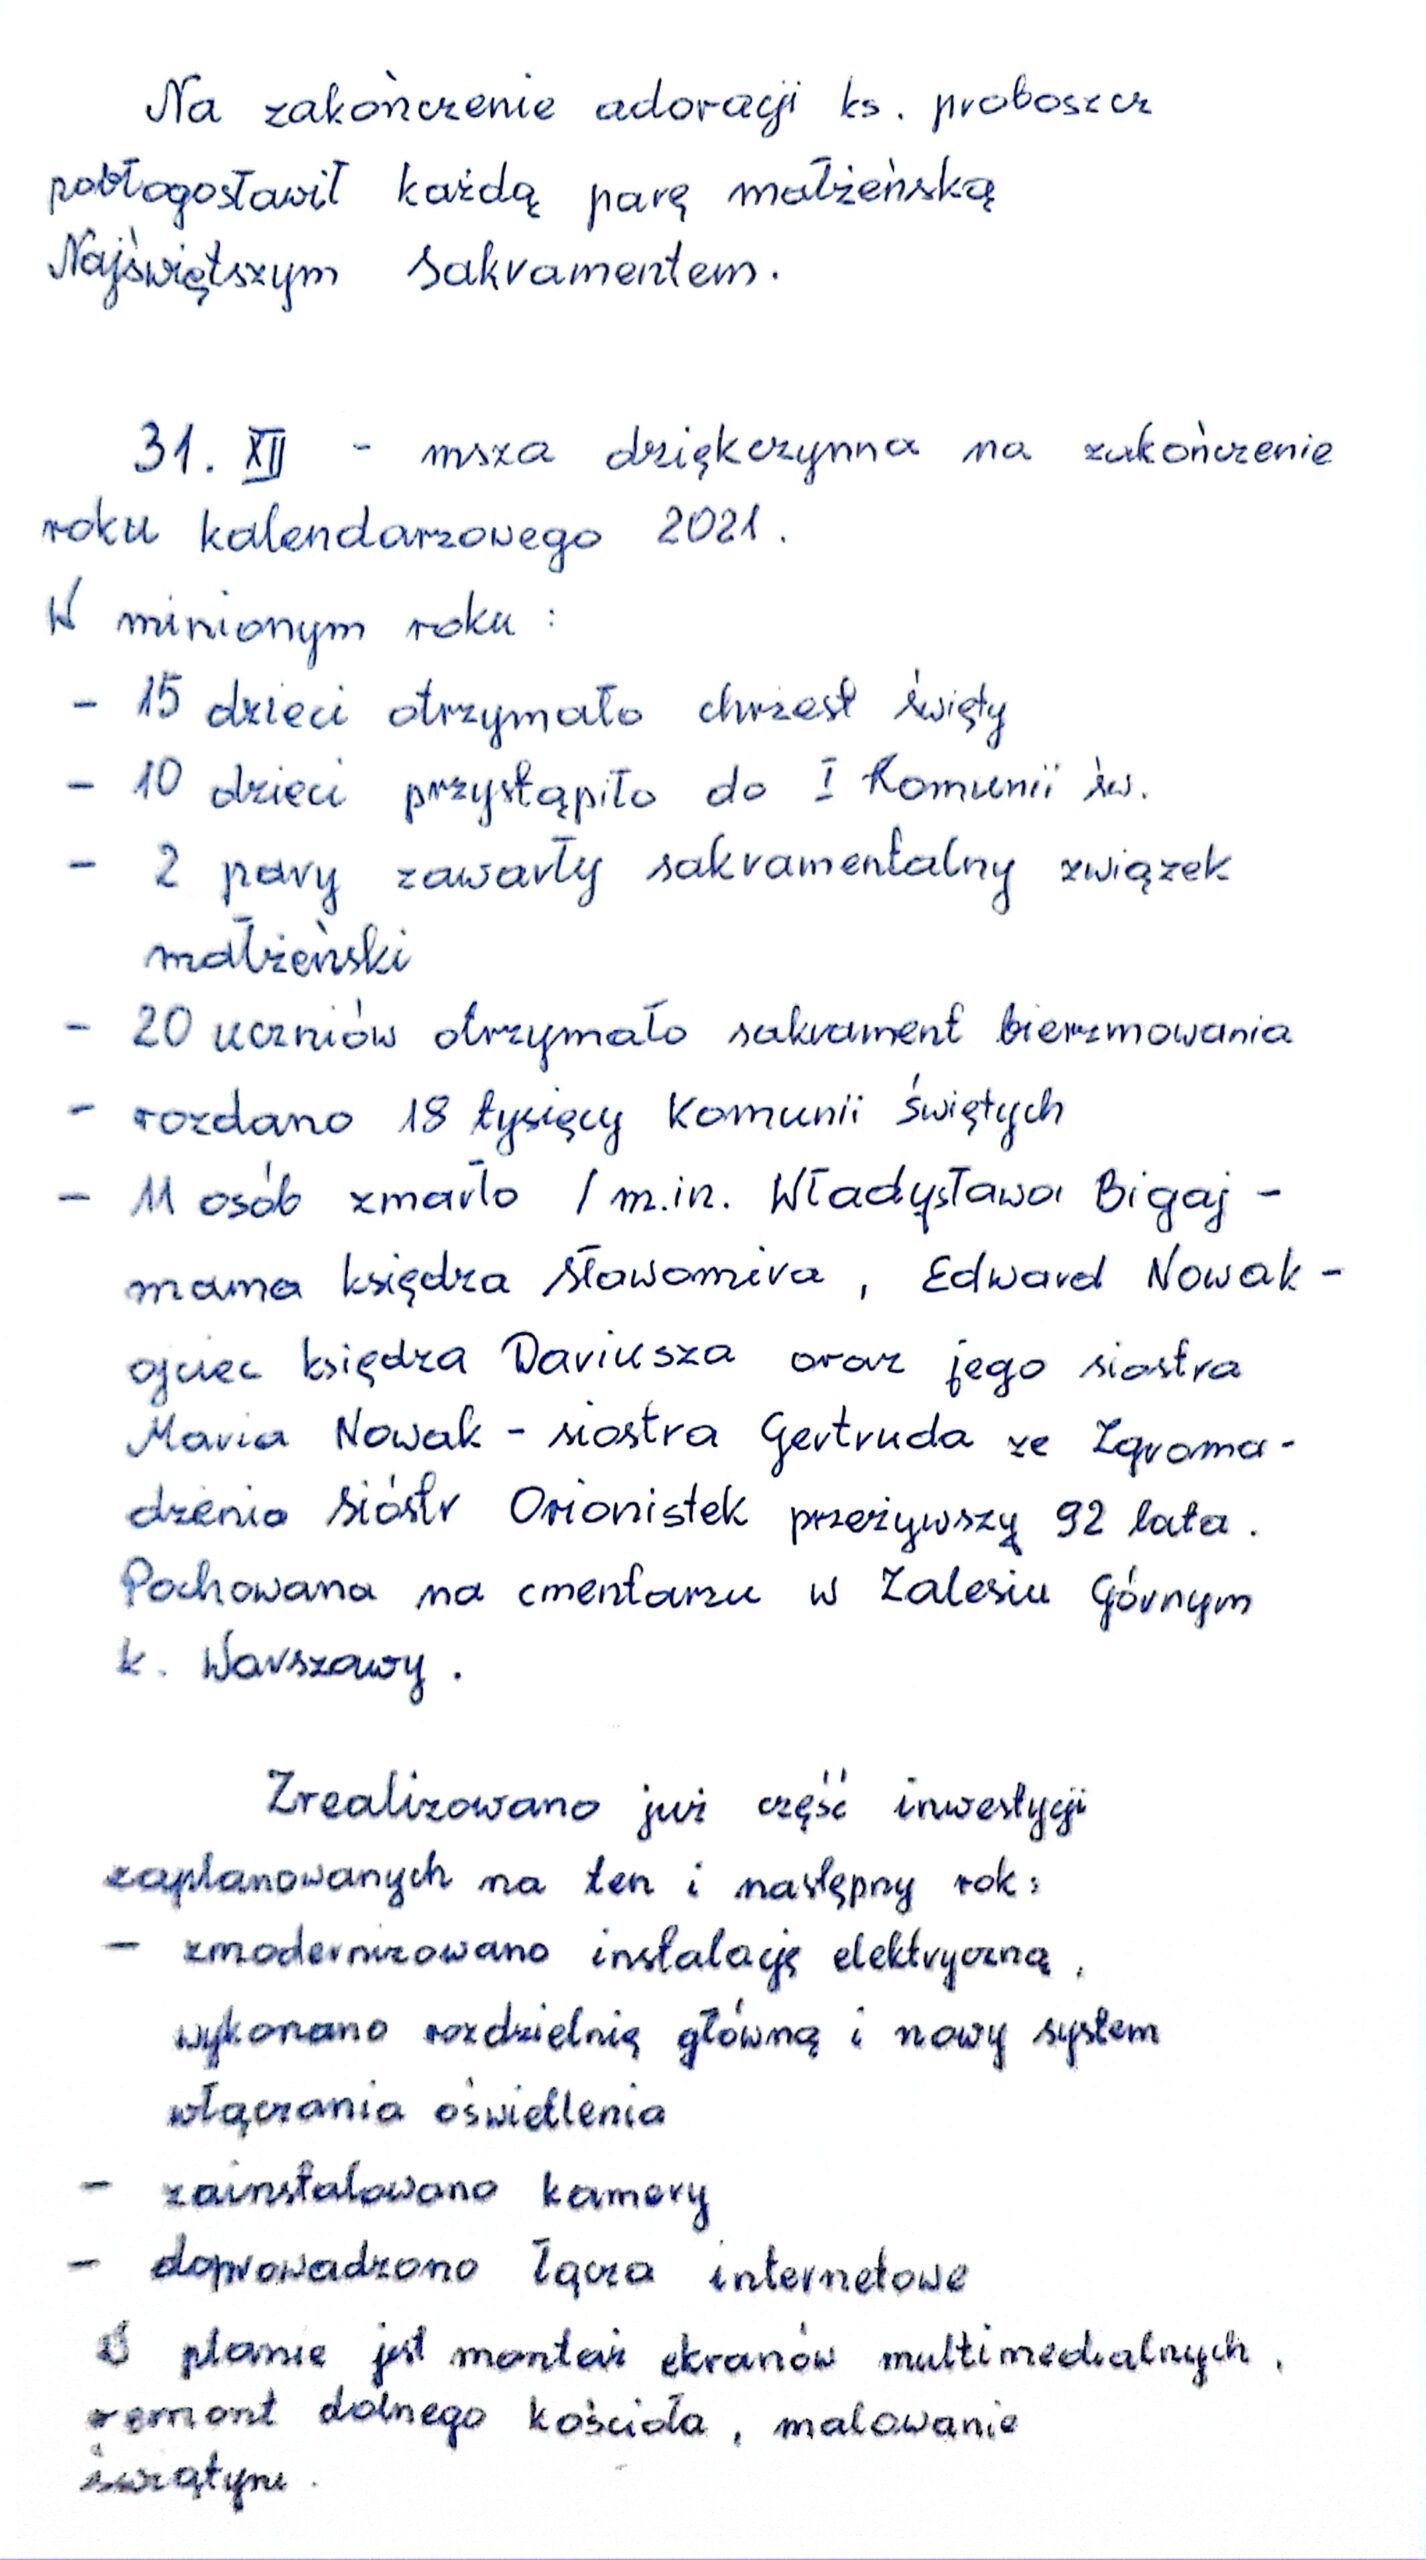 Na zakończenie adoracji ks. proboszcz
pobłogosławił każdą parę małżeńską
Najświętszym Sakramentem.
31. XII - msza dziękczynna na zakończenie
roku kalendarzowego 2021.
W minionym roku :
- 15 dzieci otrzymało chrzest święty
- 10 dzieci przystąpiło do I Komunii św.
- 2 pary zawarły sakramentalny związek
małżeński
- 20 uczniów otrzymało sakrament bierzmowania
- rozdano 18 tysięcy Komunii świętych
- 11 osób zmarło / m.in. Władysława Bigaj -
mama księdza Sławomira, Edward Nowak -
ojciec księdza Dariusza oraz jego siostra
Maria Nowak - siostra Gertruda ze Zgroma-
dzenia Sióstr Orionistek przeżywszy 92 lata.
Pochowana na cmentarzu w Zalesiu Górnym
k. Warszawy.
Zrealizowano już część inwestycji
zaplanowanych na ten i następny rok:
- zmodernizowano instalację elektryczną,
wykonano rozdzielnię główną i nowy system
włączania oświetlenia
- zainstalowano kamery
- doprowadzono łącza internetowe
W planie jest montaż ekranów multimedialnych,
remont dolnego kościoła, malowanie
świątyni.